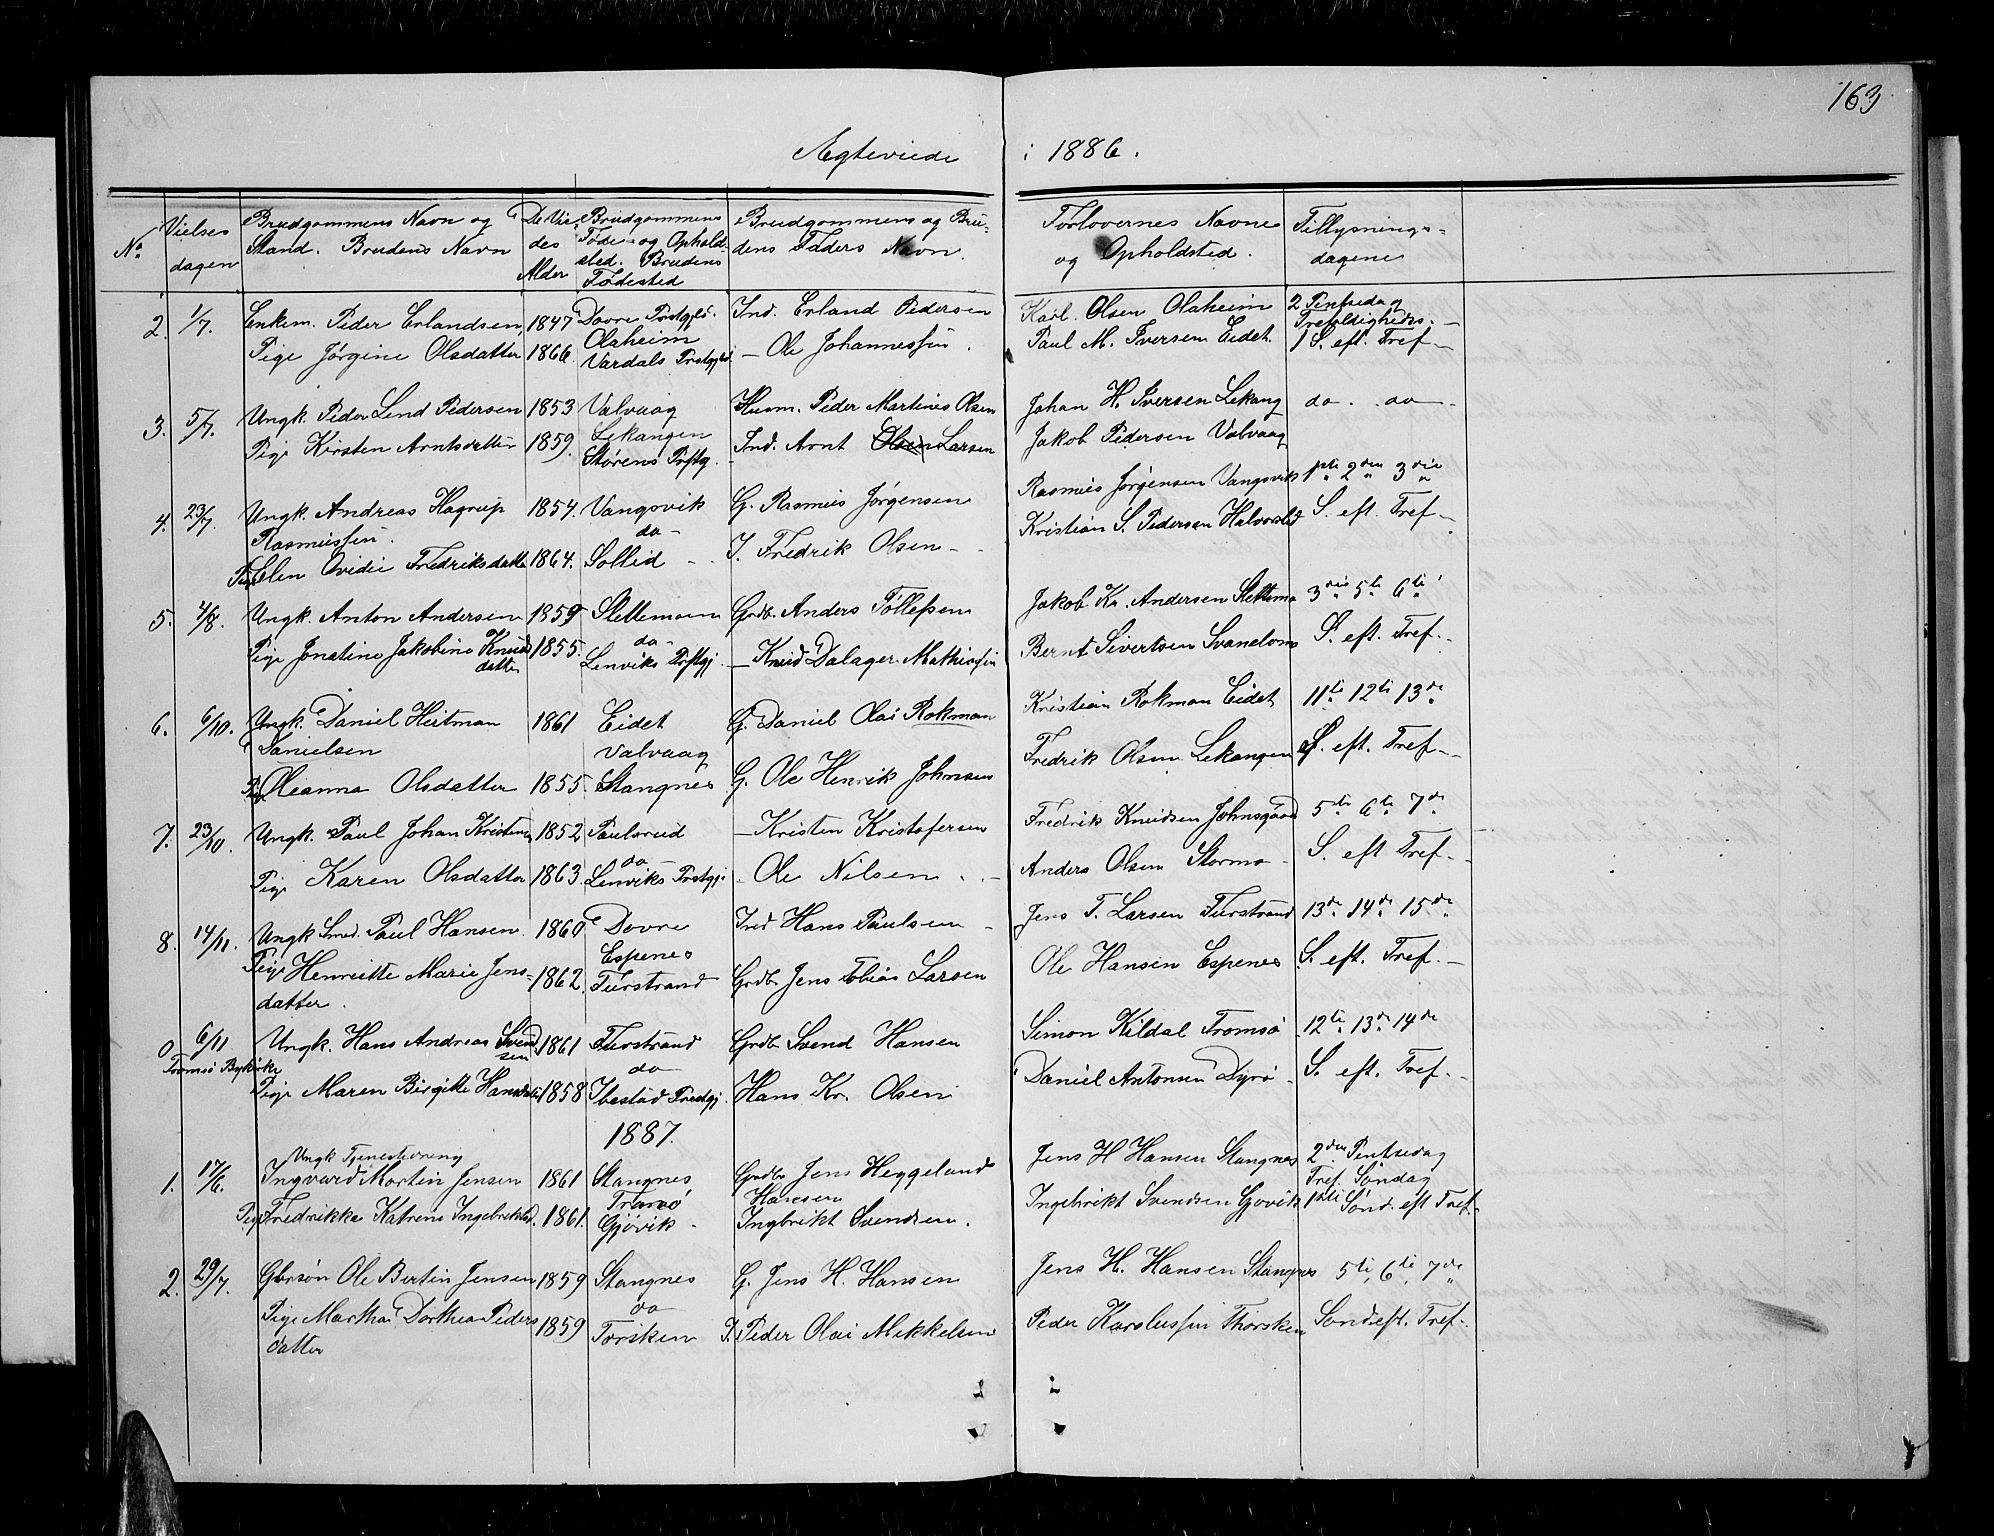 163
Ægteviede i 1886.
No
Vielses
dagen
Brudgommens Navn og
Stand. Brudens Navn
De Vie-
des
Alder
Brudgommens
Føde- og Ophold-
sted. Brudens
Fødested
Brudgommens og Bru-
dens Faders Navn.
Forlovernes Navne
og Opholdsted.
Tillysnings-
dagene
2. 1/7. Enkem. Peder Erlandsen 1847 Dovre Prstgjld. Ind. Erland Pedersen Karl Olsen Olaheim 2 Pintsedag
Olaheim Trefoldigheds. -
Pige Jørgine Olsdatter 1866 Vardals Prstgjld. - Ole Johannessen. Paul M. Iversen Eidet. 1 S. eft. Tref -
3. 5/7. Ungk. Peder Lind Pedersen 1853 Valvaag Husm. Peder Martines Olsen Johan H. Iversen Lekang do. do -
Lekangen
Pige Kirsten Arntsdatter 1859. Størens Prstg. Ind. Arnt Olsen Larsen Jakob Pedersen Valvaag
4. 23/7. Ungk. Andreas Hagrup 1854. Vangsvik G. Rasmus Jørgensen Rasmus Jørgensen Vangsvik 1ste 2den 3die
Rasmussen. do - Kristian S. Pedersen S. eft. Tref -
Pige Elen Ovidie Fredriksdatter 1864. Sollid - I. Fredrik Olsen -
5. 4/8. Ungk. Anton Andersen 1859 Slettemoen Grdb. Anders Tollefsen Jakob Kr. Andersen Slettemo 3die 5te 6te
do -
Pige Jonatine Jakobine Knuds 1855. Lenviks Prstgj. - Knud Dalager Mathiassen Bernt Sivertsen Svanelmo S. eft. Tref -
datter
6. 6/10. Ungk. Daniel Heitman 1861 Eidet G. Daniel Olai Rokman Kristian Rokman Eidet 11te 12te 13de
Danielsen Valvaag
Pige Oleanna Olsdatter 1855. Stangnes G. Ole Henrik Johnsen Fredrik Olsen Lekangen S. eft. Tref -
7. 23/10. Ungk. Paul Johan Kristensen 1852 Paulsrud - Kristen Kristofersen Fredrik Knudsen Johnsgaard 5te 6te 7de
do
Pige Karen Olsdatter 1863. Lenviks Prstgj. - Ole Nilsen. - Anders Olsen Stormo - S. eft Tref -
8. 14/11. Ungk. Smed. Paul Hansen. 1860 Dovre Ind Hans Paulsen - Jens T. Larsen Furstrand 13de 14de 15de
Espenes
Pige Henriette Marie Jens- 1862. Furstrand Grdb. Jens Tobias Larsen Ole Hansen Espenes S. eft. Tref. -
datter.
0 6/11 Ungk. Hans Andreas Svend 1861 Furstrand Grdb. Svend Hansen Simon Kildal Tromsø 12te 13de 14de
sen
Tromsø Bykirke do
Pige Maren Birgitte Hansdatter 1858 Ibestad Prestgj. Hans Kr. Olsen Daniel Antonsen Dyrø - S. eft. Tref. -
1887.
1. 17/6. Ungk Tjenestdreng
Ingvard Martin Jensen 1861 Stangnes Grdb Jens Heggelund Jens H Hansen Stangnes 2den Pintsedag
Tranø Hansen Tref. Søndag
Pige Fredrikke Katrens Ingebriktsd. 1861. Gjøvik - Ingbrikt Svendsen. Ingebrikt Svendsen Gjøvik 1ste Sønd. eft Tref -
2. 29/7. Gbrsøn Ole Bertin Jensen 1859 Stangnes G. Jens H. Hansen Jens H. Hansen Stangnes 5te, 6te, 7de
do
Pige Martha Dorthea Peders 1859 Torsken I. Peder Olai Mikkelsen Peder Karolussen Thorsken Sønd. eft. Tref -
datter